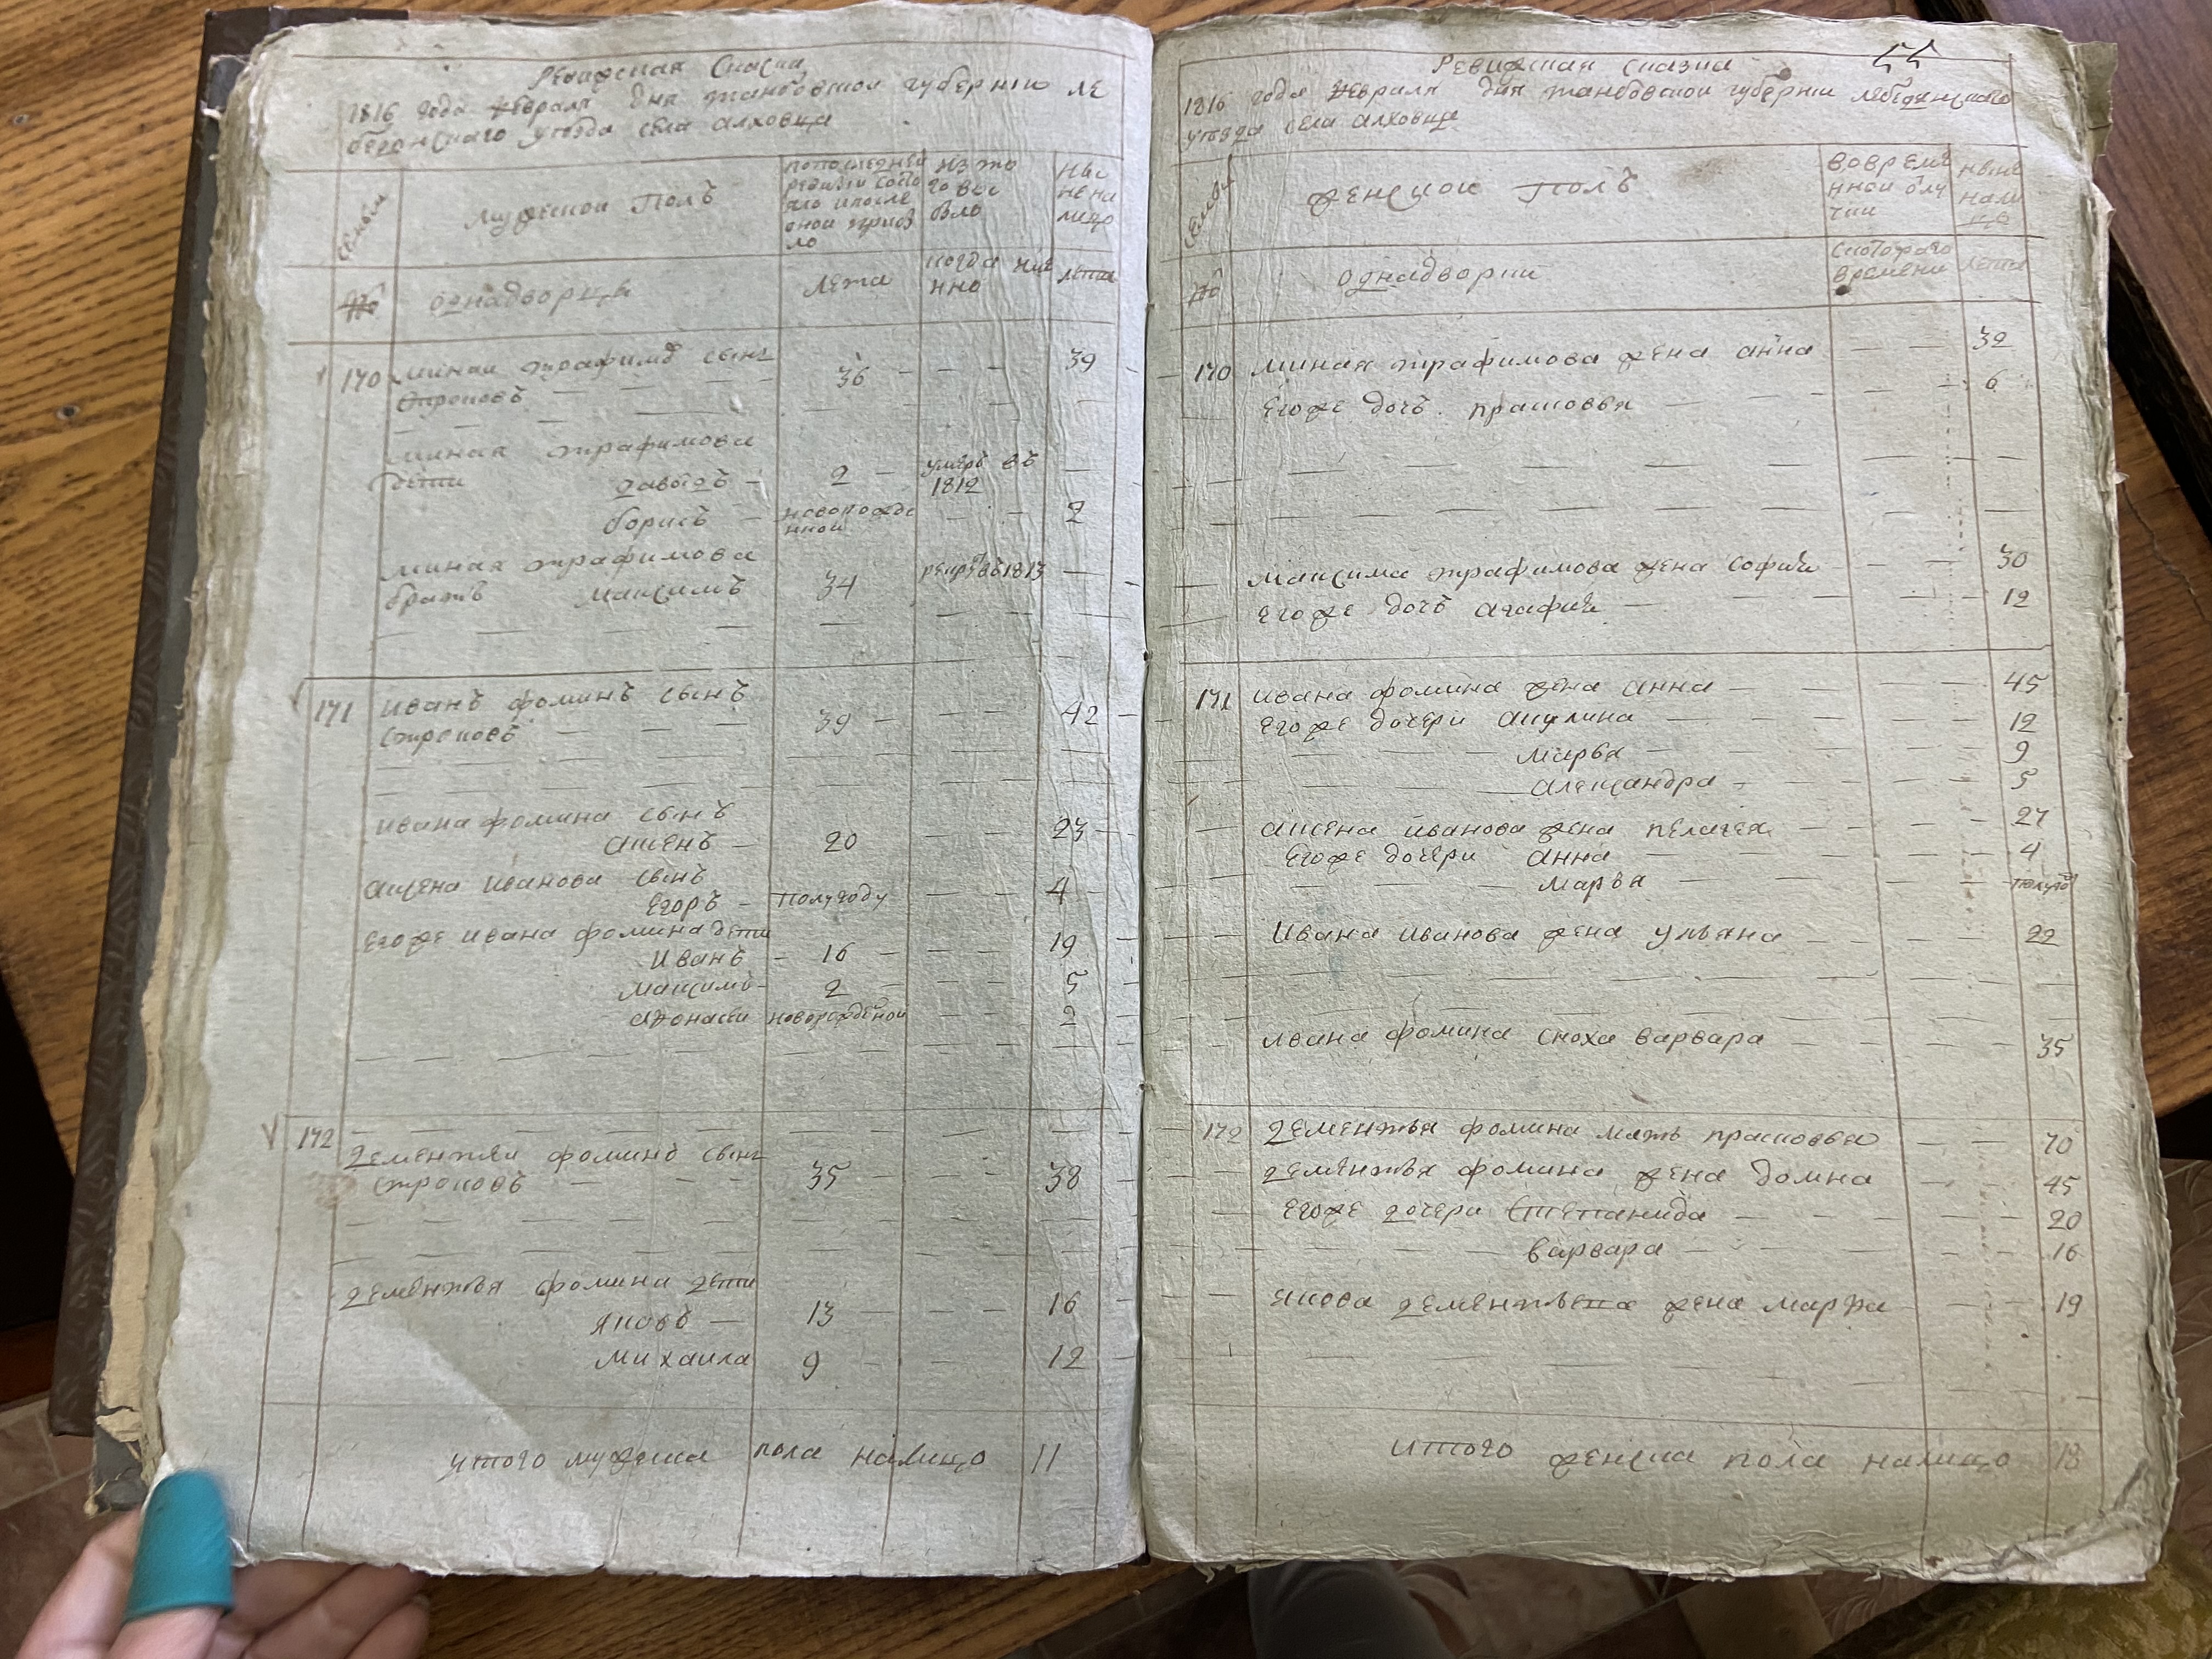 Ревижская Сказка
1816 года февраля дня танбовской губернии ле
беденскаго уезда села алховца
семьи
мужеской Полъ
попоследней
ревизи состо
яло ипосле
оной прибы
ло
из то
го вы
было
ны
не на
лицо
№
однадворцы
лета
когда име
нно
лета
170 минаи трафимъ сынъ 36 39
строковъ
миная трафимова
дети давыдъ 2 умеръ въ 1812
борисъ новорожде
нной 2
миная трафимова
братъ максимъ 34 рекрѣтвъ 1813
171 иванъ фоминъ сынъ
строковъ 39 42
ивана фомина сынъ
аксенъ 20 23
аксена иванова сынъ
Егоръ полугоду 4
егоже ивана фомина дети
иванъ 16 19
максимъ 2 5
афонасеи новорожденой 2
172
дементеи фоминъ сынъ
строковъ 35 38
дементья фомина дети
яковъ 13 16
михаила 9 12
итого мужеска пола налицо 11
55
Ревижская сказка
1816 года февраля дня танбовской губернии лебедянскаго
уезда села алховца
семьи
женской полъ
вовреме
нной отлу
чки
ныне
нали
це
№
однадворки
скоторого
времени
лета
170 миная трафимова жена анна 39
Егоже дочь прасковья 6
максима трафимова жена софия 30
егоже дочь агафия 12
171 ивана фомина жена анна 45
егоже дочери акулина 12
марѳа 9
александра 5
аксена иванова жена пелагея 27
егоже дочери анна 4
марѳа полугод
ивана иванова жена ульяна 22
ивана фомина сноха варвара 35
172 дементья фомина мать прасковья 70
дементья фомина жена домна 45
егоже дочери степанида 20
варвара 16
якова дементьева жена марфа 19
итого женска пола налицо 18